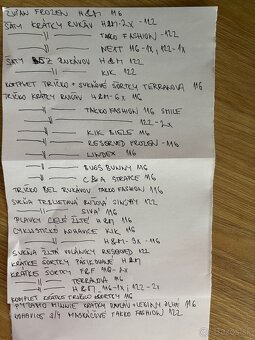 ŽUPAN FROZEN H&M 116
ŠATY KRÁTKY RUKÁV H&M-2x -122
-||- TAKO FASHION -122
-||- NEXT 116-1x, 122-1x
ŠATY BEZ RUKÁVOV H&M 122
-||- KIK 122
KOMPLET TRIČKO + SUKŇOVÉ ŠORTKY TERRANOVA 116
TRIČKO KRÁTKY RUKÁV H&M-6x 116
-||- TAKKO FASHION 116 SMILE
-||- 122-2x
-||- KIK BIELE 116
-||- RESERVED FROZEN 116
-||- LINDEX 116
-||- BUGS BUNNY 116
-||- C&A 116
TRIČKO BEZ RUKÁVOV TAKKO FASHION 116
SUKŇA TRBLIETAVÁ RUŽOVÁ 122
-||- SIVÁ 116
PLAVKY CELÉ ŽLTÉ 116
CYKLISTICKÉ KIK 116
-||- H&M-3x 116
SUKŇA ŽLTÁ VOLÁNIKY RESERVED 122
KRÁTKE ŠORTKY PÁSIKOVANÉ H&M
KRÁTKE ŠORTKY F&F 116-2x
-||- TERRANOVA 116
-||- H&M 116-1x, 122-2x
KOMPLET KRÁTKE TRIČKO ŠORTKY 116
PYŽAMO MINNIE KRÁTKY RUKÁV + LEGÍNY 116
NOHAVICE 3/4 MASKÁČOVÉ TAKKO FASHION 122